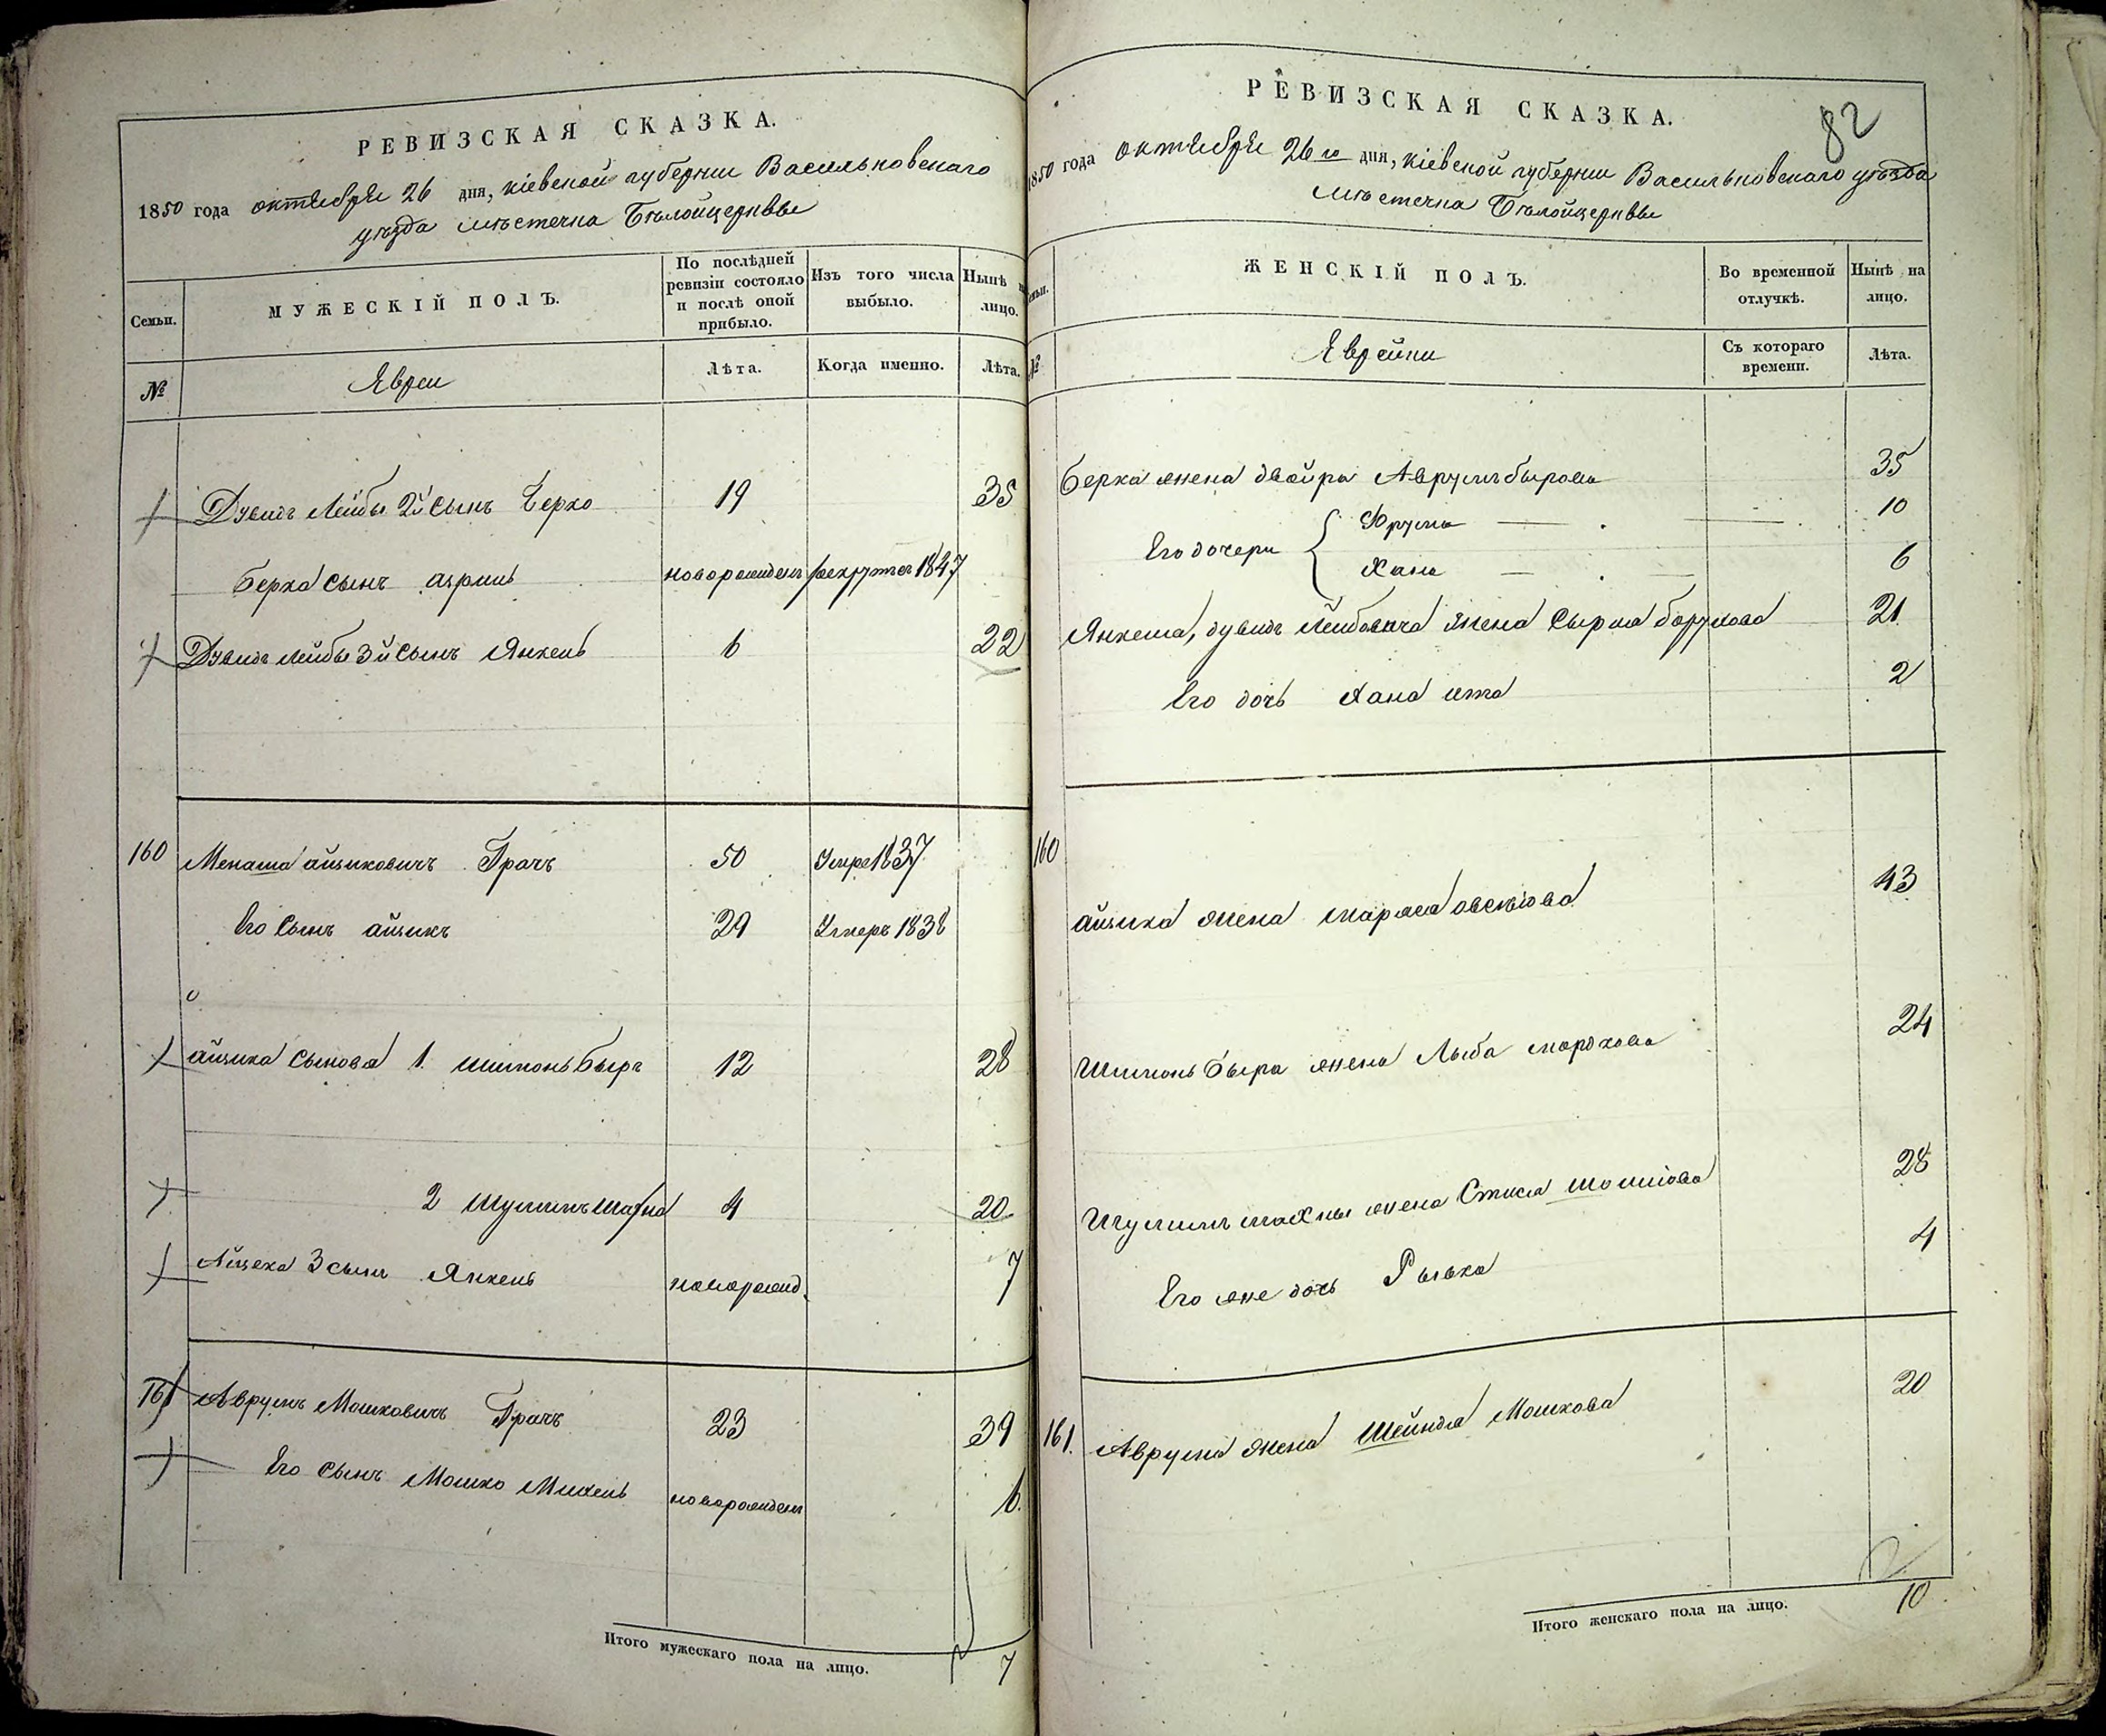 РЕВИЗСКАЯ СКАЗКА.
1850 года октября 26 дня, Кіевской губерніи Васильковскаго
уѣзда мѣстечка Бѣлойцерквы
Семьи.
МУЖЕСКІЙ ПОЛЪ.
По послѣдней ревизіи состояло и послѣ оной прибыло.
Изъ того числа выбыло.
Нынѣ на лицо.
№
Евреи
Лѣта.
Когда именно.
Лѣта.
Дувидъ Лейбы 2й сынъ Берко 19 35
Берка сынъ новорожденъ рекрутъ 1847
Дувидъ Лейбы 3й сынъ Янкель 6 22
160 Менаша Айзиковичъ Грачъ 50 Умре 1837
Его сынъ Айзикъ 29 Умеръ 1838
Айзика сыновя 1. Шимонъ Беръ 12 28
2 Шулимъ Шахна 4 20
Айзека 3 сынъ Янкель новорожд. 7
161 Аврумъ Мошковичъ Грачъ 23 39
Его сынъ Мошко Михель новорожденъ 6.
Итого мужескаго пола на лицо. 7
82
РЕВИЗСКАЯ СКАЗКА.
1850 года октября 26го дня, Кіевской губерніи Васильковскаго уѣзда
мѣстечка Бѣлойцерквы
ЖЕНСКІЙ ПОЛЪ.
Во временной отлучкѣ.
Нынѣ на лицо.
№
Еврейки
Съ котораго времени.
Лѣта.
Берка жена Двойра Аврумъ Берова 35
Его дочери { Фрума — 10
Хана — 6
Янкеля, Дувидъ Лейбовича жена Сырма Борухова 21
Его дочь Хана Ита 2
160
Айзика жена Маряся 43
Шимонъ Бера жена Лыба Мордхова 24
Шулимъ Шахны жена Стися 28
Его же дочь Рывка 4
161. Аврума жена Шейндя Мошкова 20
Итого женскаго пола на лицо. 10